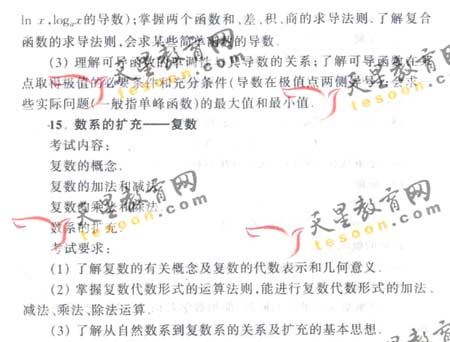 ln x, logₐx的导数);掌握两个函数和、差、积、商的求导法则.了解复合
函数的求导法则,会求某些简单函数的导数.
(3) 理解可导函数的单调性与其导数的关系;了解可导函数在某
点取得极值的必要条件和充分条件(导数在极值点两侧异号);会求一
些实际问题(一般指单峰函数)的最大值和最小值.
15. 数系的扩充——复数
考试内容:
复数的概念.
复数的加法和减法.
复数的乘法和除法.
数系的扩充.
考试要求:
(1) 了解复数的有关概念及复数的代数表示和几何意义.
(2) 掌握复数代数形式的运算法则,能进行复数代数形式的加法、
减法、乘法、除法运算.
(3) 了解从自然数系到复数系的关系及扩充的基本思想.
天星教育网
tesoon.com
天星教育网
tesoon.com
天星教育网
tesoon.com
天星教育网
tesoon.com
天星教
tesoon